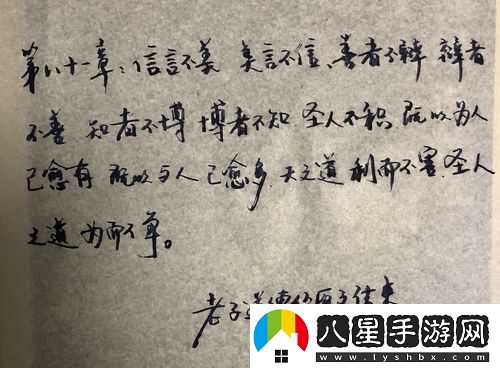 第八十一章：信言不美 美言不信、善者不辩 辩者
不善 知者不博 博者不知 圣人不积 既以为人
己愈有 既以与人 己愈多. 天之道 利而不害. 圣人
之道 为而不争。
老子道德
八星手游网
www.lyshbx.com